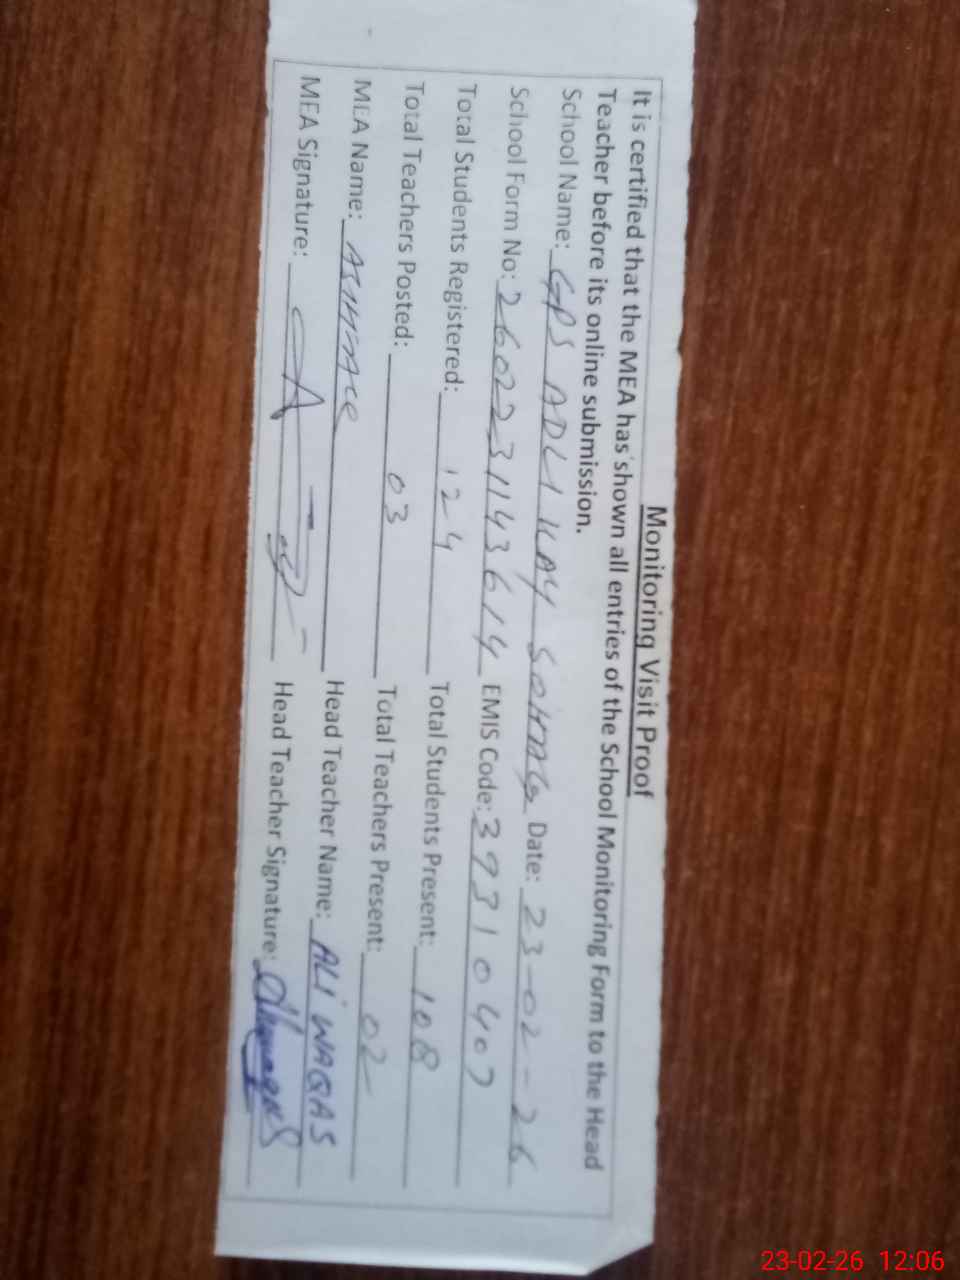 Monitoring Visit Proof
It is certified that the MEA has shown all entries of the School Monitoring Form to the Head
Teacher before its online submission.
School Name: GPS ADLI KAY Date: 23-02-26
School Form No: 2602231143614 EMIS Code: 37310407
Total Students Registered: 124 Total Students Present: 108
Total Teachers Posted: 03 Total Teachers Present: 02
MEA Name: Head Teacher Name: ALI WAQAS
MEA Signature: Head Teacher Signature:
23-02-26 12:06